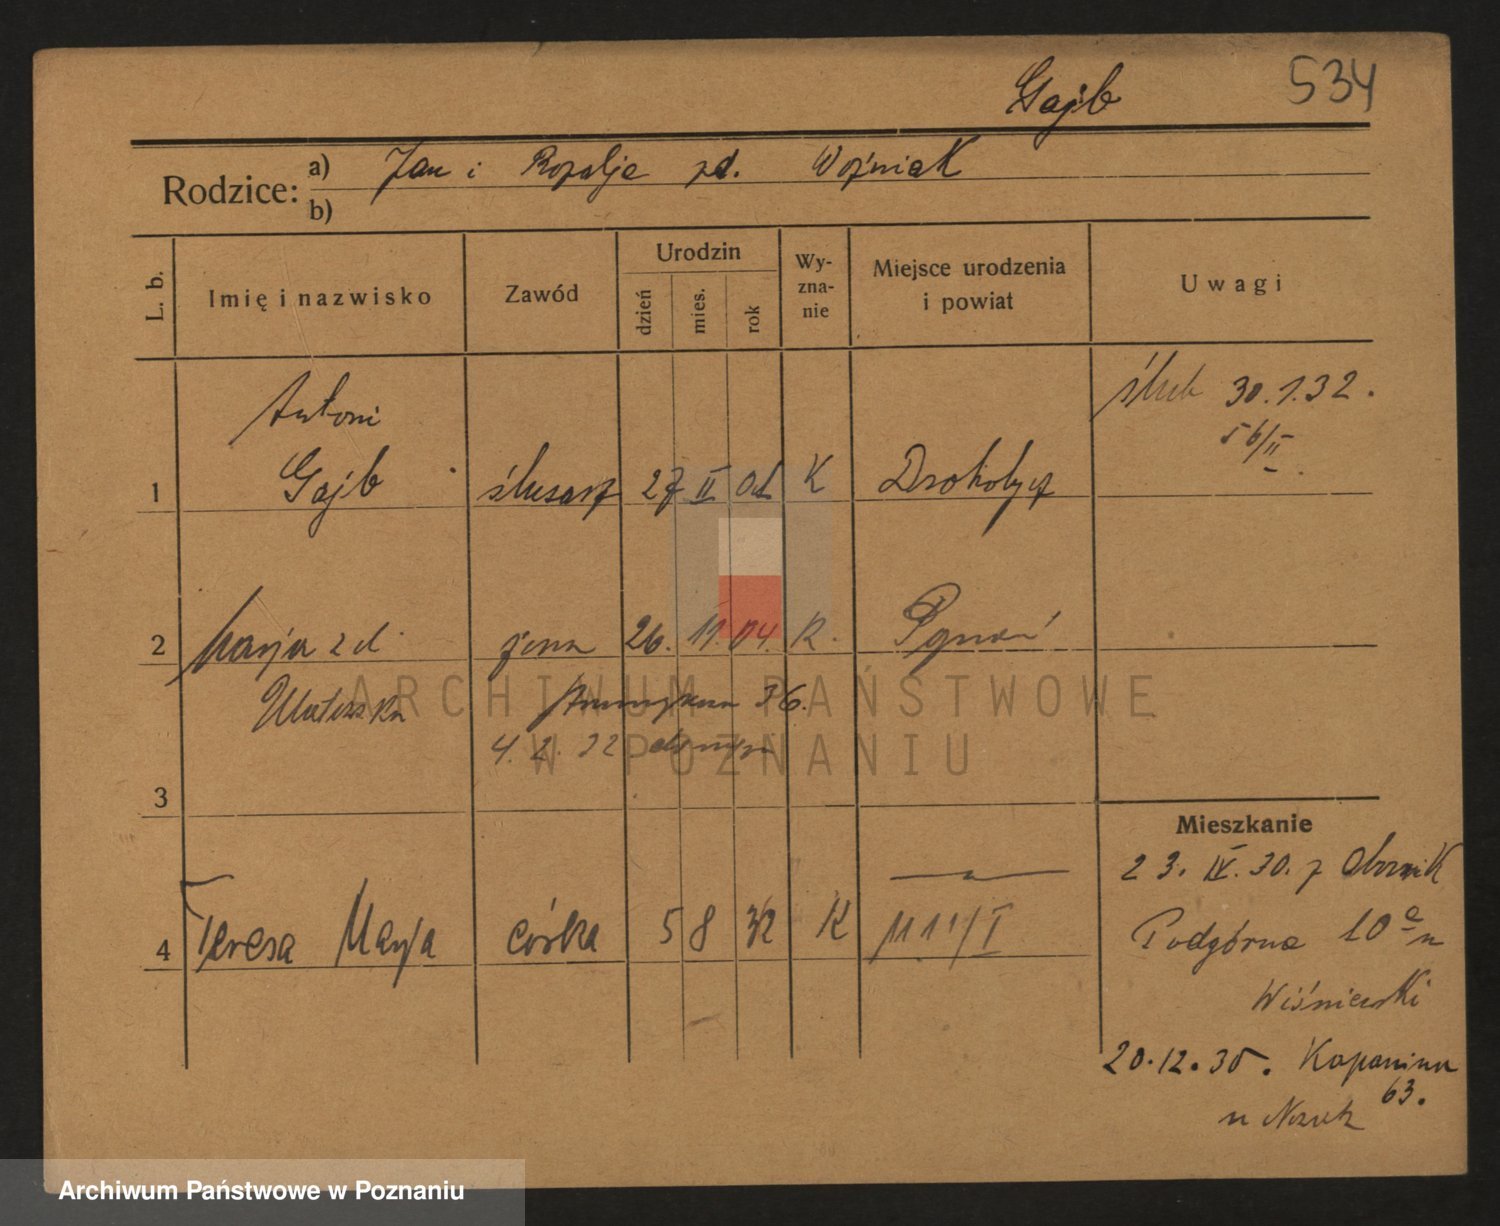 Gajb 534
Rodzice: a) Jan i Rozalja zd. Woźniak
b)
L. b. Imię i nazwisko Zawód Urodzin dzień mies. rok Wy-zna-nie Miejsce urodzenia i powiat Uwagi
Antoni
ślub 30.1.32.
56/II
1 Gajb ślusarz 27 II 01 K Drohobycz
2 Marja zd. żona 26. 11. 04. R. Poznań
36.
4. 2. 32
3
Mieszkanie
23. IV. 30. z Obornik
4 Teresa Marja córka 5 8 32 K
Podgórna 10 a
u
Wiśniewski
20.12.30. Kopanina
63.
u Nowak
ARCHIWUM PAŃSTWOWE
W POZNANIU
Archiwum Państwowe w Poznaniu